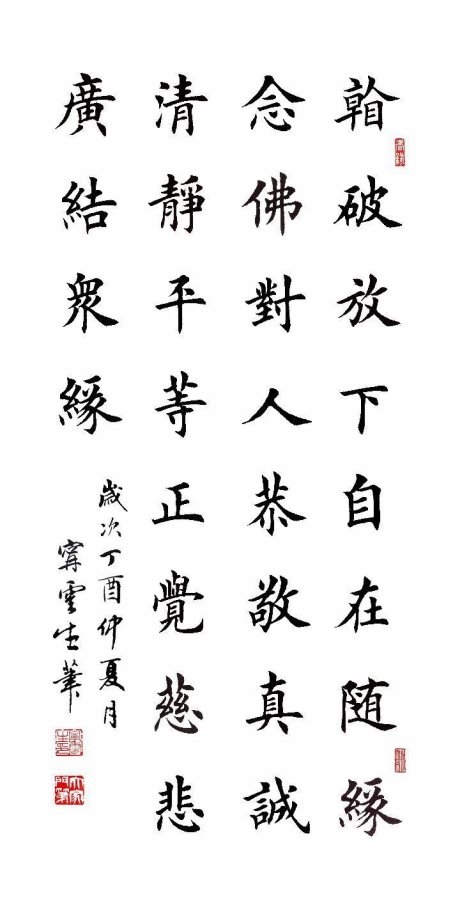 破放下自在随緣
念佛對人恭敬真誠
清靜平等正覺慈悲
廣結衆緣
歲次丁酉仲夏月
雲生筆